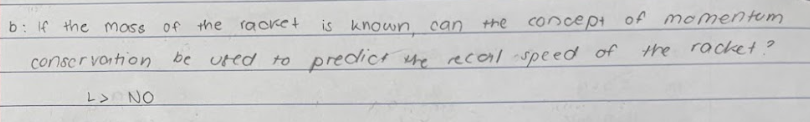 b: If the mass of the racket is known, can the concept of momentum
conservation be used to predict the recoil speed of the racket?
L> NO